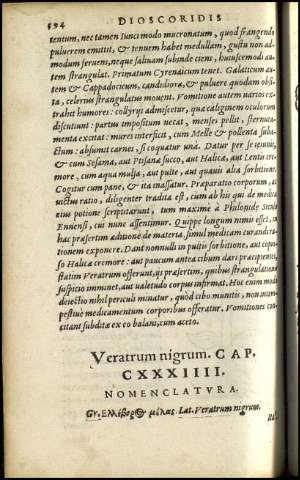 594 DIOSCORIDIS
tentum, nec tamen iunci modo mucronatum, quod frangendo
puluerem emittit, & tenuem habet medullam, gustu non ad-
modum feruens, neque saliuam subinde ciens, huiuscemodi au-
tem strangulat. Primatum Cyrenaicum tenet. Galaticum au-
tem & Cappadocicum, candidiora, & puluere quodam obsi-
ta, celerius strangulatus mouent. Vomitione autem varios ex-
trahit humores: collyrijs admiscetur, quæ caliginem oculorum
discutiunt: partus impositum necat, menses pellit, sternuta-
menta excitat: mures interficit, cum Melle & pollenta suba-
ctum: absumit carnes, si coquatur unà. Datur per se ieiunis,
& cum Sesama, aut Ptisanæ succo, aut Halica, aut Lentis cre-
more, cum aqua mulsa, aut pulte, aut quauis alia sorbitione.
Cogitur cum pane, & ita assatur. Præparatio corporum, &
uictus ratio, diligenter tradita est, cum ab his qui de medica
eius potione scriptitarunt, tum maximè à Philonide Siculo
Ennensi, cui nunc assentimur. Quippe longum nimis esset, in
hac præsertim aditione de materia, simul medicam curandi ra-
tionem exponere. Dant nonnulli in pultis sorbitione, aut copio-
so Halicæ cremore: aut paucum antea cibum dari præcipientes,
statim Veratrum offerunt, ijs præsertim, quibus strangulationis
suspicio imminet, aut ualetudo corpus infirmat. Hoc enim modo
deiectio nihil periculi minatur, quòd cibo munitis, non intem-
pestiuè medicamentum corporibus offeratur. Vomitiones con-
citant subditæ ex eo balani, cum aceto.
Veratrum nigrum. CAP.
CXXXIIII.
NOMENCLATVRA.
Gr. Ελλέβορος μέλας. Lat. Veratrum nigrum.